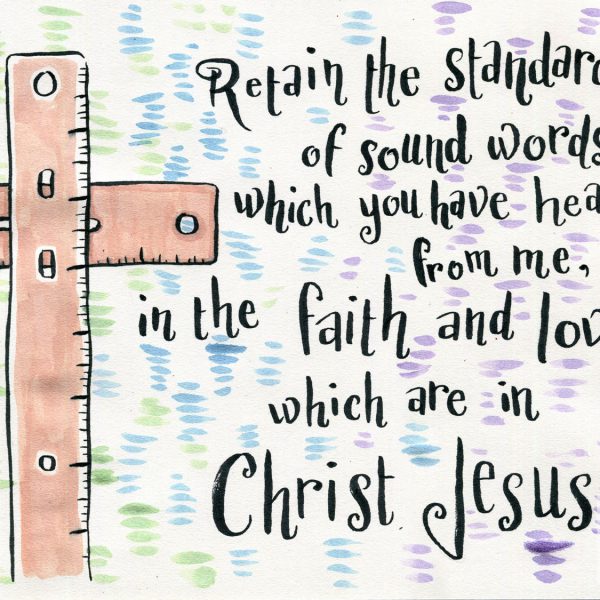 Retain the standard
of sound words
which you have hea
from me,
in the faith and lov
which are in
Christ Jesus